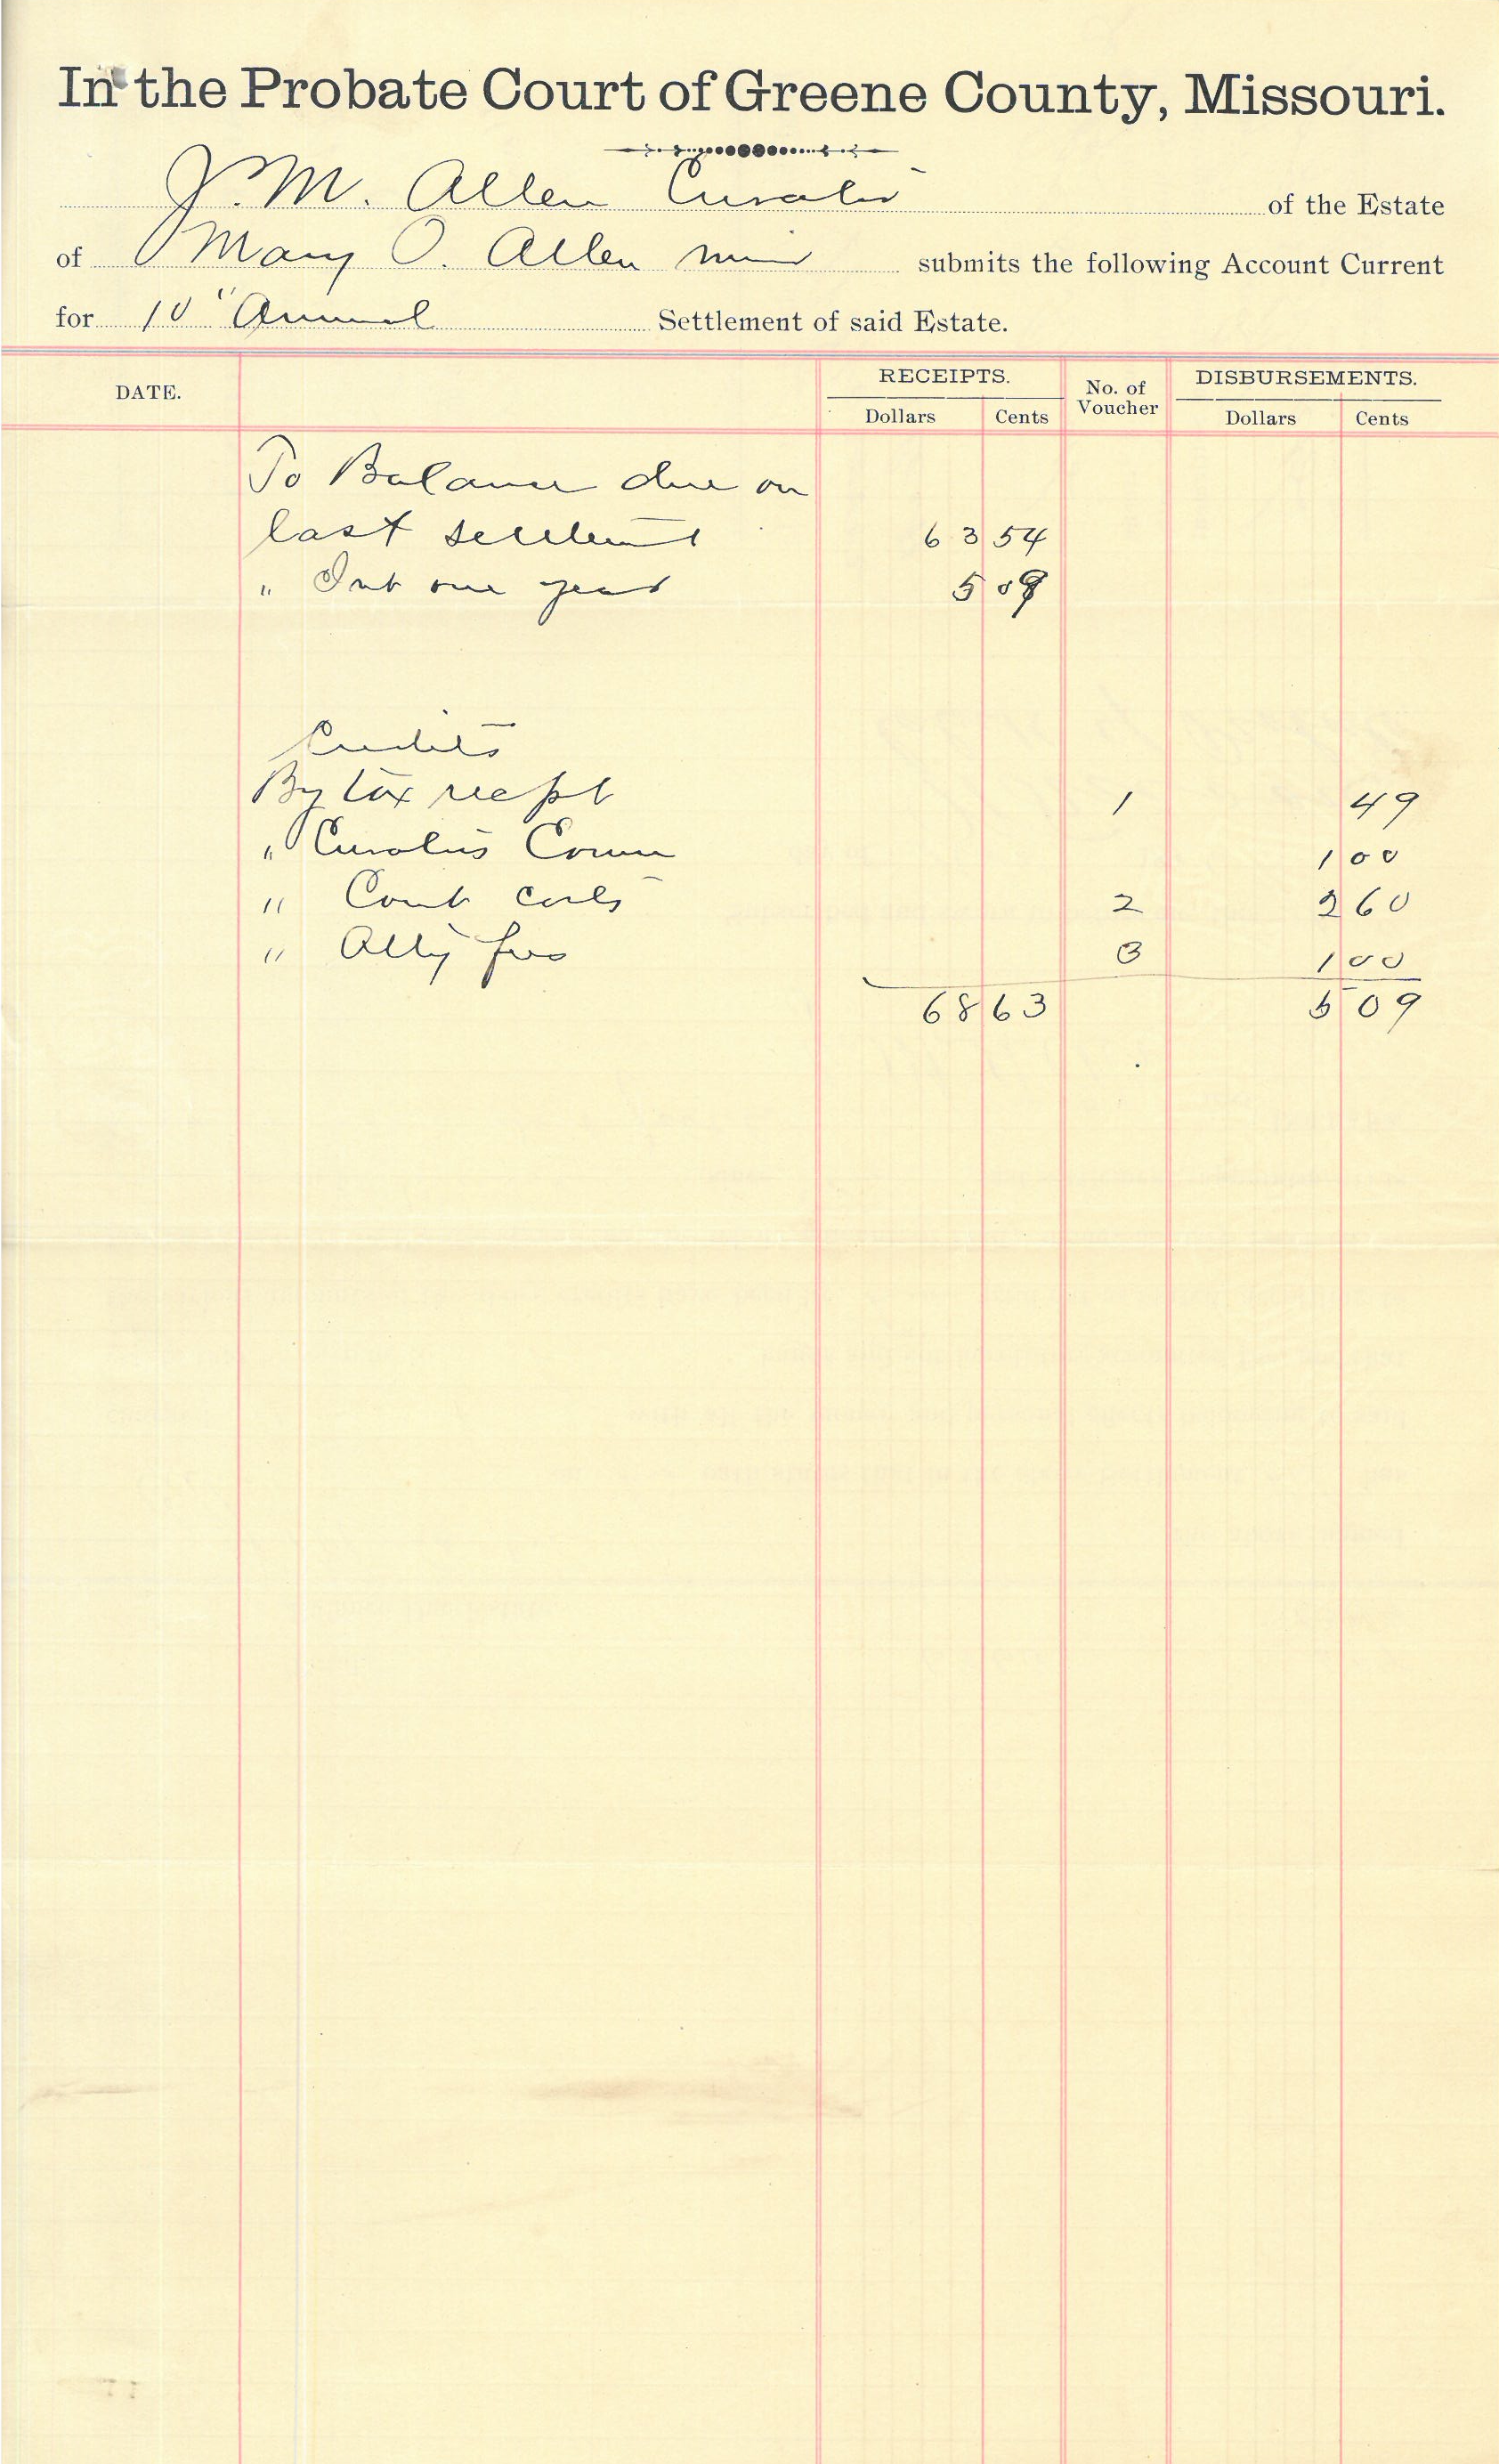 In the Probate Court of Greene County, Missouri.
J. M. Allen Curator of the Estate
of Mary O. Allen minor submits the following Account Current
for 10" Annual Settlement of said Estate.
DATE. RECEIPTS. No. of Voucher DISBURSEMENTS.
Dollars Cents Dollars Cents
To Balance due on
last settlement 63 54
" Int one year 5 09
Credits
By tax recept 1 49
" Curators Comm 1 00
" Court costs 2 2 60
" Atty fees 3 1 00
68 63 5 09